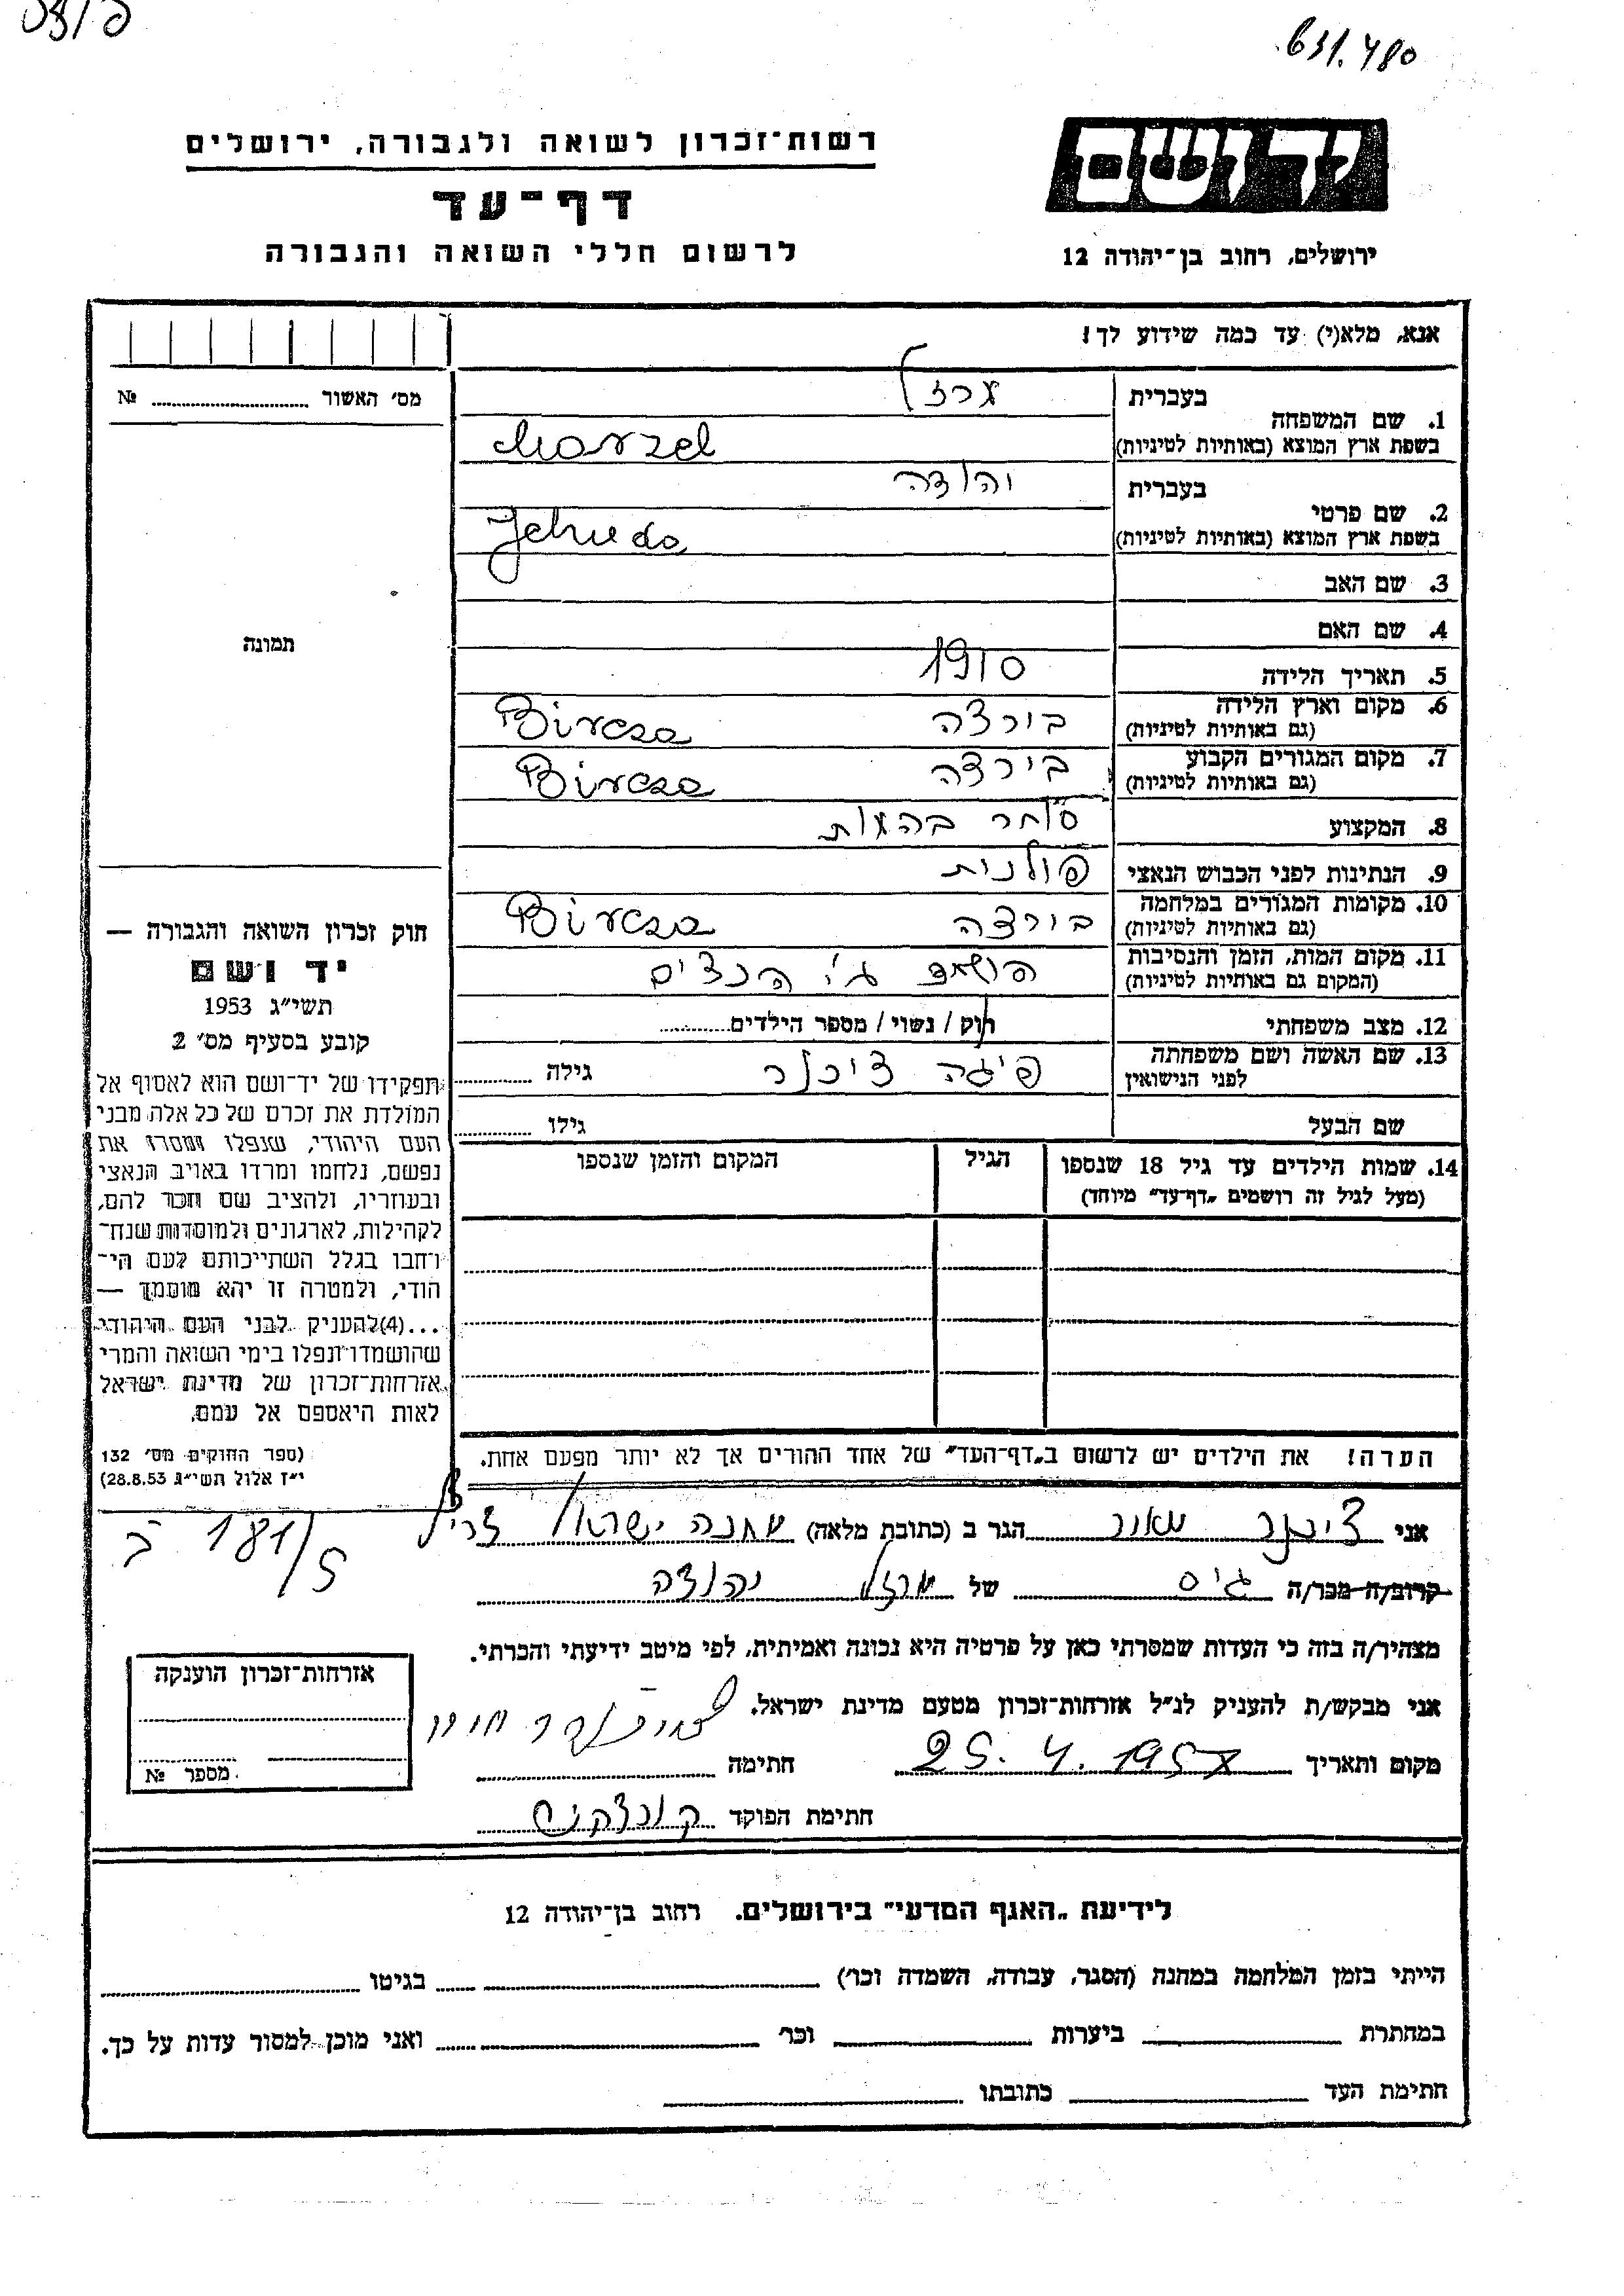 631.480
יד ושם
ירושלים, רחוב בן־יהודה 12
רשות־זכרון לשואה ולגבורה, ירושלים
דף־עד
לרשום חללי השואה והגבורה
אנא, מלא(י) עד כמה שידוע לך!
1. שם המשפחה
בעברית מרזל
בשפת ארץ המוצא (באותיות לטיניות) Marzel
2. שם פרטי
בעברית יהודה
בשפת ארץ המוצא (באותיות לטיניות) Jehuda
3. שם האב
4. שם האם
5. תאריך הלידה 1910
6. מקום וארץ הלידה בירצה Bircza
(גם באותיות לטיניות)
7. מקום המגורים הקבוע בירצה Bircza
(גם באותיות לטיניות)
8. המקצוע סוחר בהמות
9. הנתינות לפני הכבוש הנאצי פולנית
10. מקומות המגורים במלחמה בירצה Bircza
(גם באותיות לטיניות)
11. מקום המות, הזמן והנסיבות הושמד ע"י הנצים
(המקום גם באותיות לטיניות)
12. מצב משפחתי רוק / נשוי / מספר הילדים
13. שם האשה ושם משפחתה פיגה גילה
לפני הנישואין
שם הבעל גילו
14. שמות הילדים עד גיל 18 שנספו הגיל המקום והזמן שנספו
(מעל לגיל זה רושמים „דף־עד" מיוחד)
הערה! את הילדים יש לרשום ב„דף־העד" של אחד ההורים אך לא יותר מפעם אחת.
מס׳ האשור №
תמונה
חוק זכרון השואה והגבורה —
יד ושם
תשי״ג 1953
קובע בסעיף מס׳ 2
תפקידו של יד־ושם הוא לאסוף אל
המולדת את זכרם של כל אלה מבני
העם היהודי, שנפלו ומסרו את
נפשם, נלחמו ומרדו באויב הנאצי
ובעוזריו, ולהציב שם וזכר להם,
לקהילות, לארגונים ולמוסדות שנח־
רחבו בגלל השתייכותם לעם הי־
הודי, ולמטרה זו יהא מוסמך —
...(4)להעניק לבני העם היהודי
שהושמדו ונפלו בימי השואה והמרי
אזרחות־זכרון של מדינת ישראל
לאות היאספם אל עמם.
(ספר החוקים מס׳ 132
י״ז אלול תשי״ג 28.8.53)
אני הגר ב (כתובת מלאה) מחנה ישראל
181/5 ב
קרוב/ה מכר/ה גיס של מרזל יהודה
מצהיר/ה בזה כי העדות שמסרתי כאן על פרטיה היא נכונה ואמיתית, לפי מיטב ידיעתי והכרתי.
אני מבקש/ת להעניק לנ״ל אזרחות־זכרון מטעם מדינת ישראל.
מקום ותאריך 25.4.1957 חתימה
חתימת הפוקד
אזרחות־זכרון הוענקה
מספר №
לידיעת „האגף המדעי" בירושלים. רחוב בן־יהודה 12
הייתי בזמן המלחמה במחנה (הסגר, עבודה, השמדה וכר׳) בגיטו
במחתרת ביערות וכר׳ ואני מוכן למסור עדות על כך.
חתימת העד כתובתו